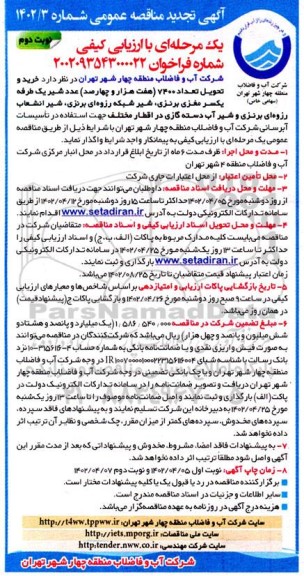 آگهی تجدید مناقصه عمومی شماره ۱۴۰۲/۳
نوبت دوم
یک مرحله‌ای با ارزیابی کیفی
شماره فراخوان ۲۰۰۲۰۹۳۵۴۳۰۰۰۰۲۲
شرکت آب و فاضلاب
منطقه چهار شهر تهران
(سهامی خاص)
شرکت آب و فاضلاب منطقه چهار شهر تهران در نظر دارد خرید و
تحویل تعداد ۷۴۰۰ (هفت هزار و چهارصد) عدد شیر یک طرفه
یکسر مغزی برنزی، شیر شبکه رزوه‌ای برنزی، شیر انشعاب
رزوه‌ای برنزی و شیر آب دسته گازی در اقطار مختلف جهت استفاده در تأسیسات
آبرسانی شرکت آب و فاضلاب منطقه چهار شهر تهران با شرایط ذیل از طریق مناقصه
عمومی یک مرحله‌ای با ارزیابی کیفی به پیمانکار واجد شرایط واگذار نماید.
۱- مدت و محل اجرا: ظرف مدت ۶ ماه از تاریخ ابلاغ قرارداد در محل انبار مرکزی شرکت
آب و فاضلاب منطقه ۴ شهر تهران
۲- محل تأمین اعتبار: از محل اعتبارات جاری شرکت
۳- مهلت و محل دریافت اسناد مناقصه: داوطلبان می‌توانند جهت دریافت اسناد مناقصه
از روز دوشنبه مورخ ۱۴۰۲/۰۴/۰۵ حداکثر تا ساعت ۱۵ روز دوشنبه مورخ ۱۴۰۲/۰۴/۱۲ از طریق
سامانه تدارکات الکترونیکی دولت به آدرس www.setadiran.ir اقدام نمایند.
۴- مهلت و محل تحویل اسناد ارزیابی کیفی و اسناد مناقصه: متقاضیان شرکت در
مناقصه می‌بایست کلیه مدارک مربوط به پاکات (الف، ب، ج) و اسناد ارزیابی کیفی را
حداکثر تا ساعت ۱۳ روز یکشنبه مورخ ۱۴۰۲/۰۴/۲۵ در سامانه تدارکات الکترونیکی
دولت به آدرس www.setadiran.ir بارگذاری و ثبت نمایند.
زمان اعتبار پیشنهاد قیمت متقاضیان تا تاریخ ۱۴۰۲/۰۸/۲۵ می‌باشد.
۵- تاریخ بازگشایی پاکات ارزیابی و امتیازدهی بر اساس شاخص‌ها و معیارهای ارزیابی
کیفی در ساعت ۹ صبح روز دوشنبه مورخ ۱۴۰۲/۰۴/۲۶ و بازگشایی پاکات ج (پیشنهاد قیمت)
در همان روز می‌باشد.
۶- مبلغ تضمین شرکت در مناقصه ۱.۵۸۶.۵۴۰.۰۰۰ (یک میلیارد و پانصد و هشتاد و
شش میلیون و پانصد و چهل هزار) ریال می‌باشد که شرکت‌کنندگان در مناقصه می‌توانند
در وجه شرکت آب و فاضلاب
منطقه چهار شهر تهران و یا چک بانکی تضمینی در وجه شرکت آب و فاضلاب منطقه چهار
شهر تهران دریافت و تصویر ضمانت‌نامه را در سامانه تدارکات الکترونیک دولت در
پاکت (الف) بارگذاری و ثبت نمایند و اصل ضمانت‌نامه ممهور را تا ساعت ۱۳ روز یکشنبه
مورخ ۱۴۰۲/۰۴/۲۵ به دبیرخانه این شرکت تسلیم نمایند و به پیشنهادهای فاقد سپرده،
سپرده‌های مخدوش، سپرده‌های کمتر از میزان مقرر، چک شخصی و نظایر آن ترتیب اثر
داده نخواهد شد.
۷- به پیشنهادات فاقد امضا، مشروط، مخدوش و پیشنهاداتی که بعد از مدت مقرر این
آگهی واصل شود مطلقاً ترتیب اثر داده نخواهد شد.
۸- زمان چاپ آگهی: نوبت اول ۱۴۰۲/۰۴/۰۵ و نوبت دوم ۱۴۰۲/۰۴/۰۷
برگزار کننده مناقصه در رد یا قبول یک یا کلیه پیشنهادات مختار است.
سایر اطلاعات و جزئیات در اسناد مناقصه مندرج است.
هزینه درج آگهی در روزنامه به عهده مناقصه‌گزار می‌باشد.
سایت شرکت آب و فاضلاب منطقه چهار شهر تهران: http://t4ww.tpww.ir
سایت ملی مناقصات: http://iets.mporg.ir
سایت شرکت مهندسی: http://tender.nww.co.ir
شرکت آب و فاضلاب منطقه چهار شهر تهران